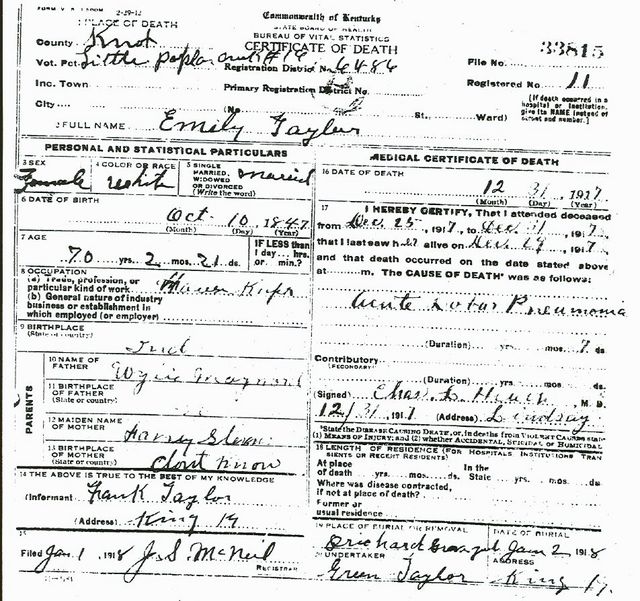 2-29-12
1 PLACE OF DEATH
Commonwealth of Kentucky
STATE BOARD OF HEALTH
BUREAU OF VITAL STATISTICS
CERTIFICATE OF DEATH
33815
County Knox
Vot. Pct. Little poplar creek # 19
Registration District No. 6486
File No.
Inc. Town
Primary Registration District No.
Registered No. 11
City (No. St., Ward)
[If death occurred in a hospital or institution, give its NAME instead of street and number.]
2 FULL NAME Emily Taylor
PERSONAL AND STATISTICAL PARTICULARS
3 SEX Female
4 COLOR OR RACE white
5 SINGLE MARRIED, WIDOWED OR DIVORCED (Write the word) married
6 DATE OF BIRTH Oct 10, 1847
(Month) (Day) (Year)
7 AGE 70 yrs. 2 mos. 21 ds.
IF LESS than 1 day... hrs. or min.?
8 OCCUPATION
(a) Trade, profession, or particular kind of work House
(b) General nature of industry business or establishment in which employed (or employer)
9 BIRTHPLACE
(State or country)
PARENTS
10 NAME OF FATHER
11 BIRTHPLACE OF FATHER
(State or country)
12 MAIDEN NAME OF MOTHER
13 BIRTHPLACE OF MOTHER
(State or country) Dont Know
14 THE ABOVE IS TRUE TO THE BEST OF MY KNOWLEDGE
(Informant Frank Taylor
(Address) King Ky
15
Filed Jan 1 1918 J. S. McNeil
REGISTRAR
MEDICAL CERTIFICATE OF DEATH
16 DATE OF DEATH
12 31, 1917
(Month) (Day) (Year)
17 I HEREBY CERTIFY, That I attended deceased
from Dec. 25, 1917, to Dec 31, 1917,
that I last saw h alive on Dec. 29, 1917,
and that death occurred on the date stated above
at m. The CAUSE OF DEATH* was as follows:
Acute Lobar Pneumonia
(Duration) yrs. mos. 7 ds
Contributory
(SECONDARY)
(Duration) yrs. mos. ds
(Signed) Chas. L. M. D.
12/31 191 (Address) Lindsay
*State the DISEASE CAUSING DEATH, or, in deaths from VIOLENT CAUSES state
(1) MEANS OF INJURY; and (2) whether ACCIDENTAL, SUICIDAL or HOMICIDAL
18 LENGTH OF RESIDENCE (FOR HOSPITALS INSTITUTIONS TRANSIENTS OR RECENT RESIDENTS)
At place of death yrs. mos. ds. In the State yrs. mos. ds
Where was disease contracted, if not at place of death?
Former or usual residence
19 PLACE OF BURIAL OR REMOVAL
DATE OF BURIAL Jan 2 1918
20 UNDERTAKER Green Taylor
ADDRESS King Ky.